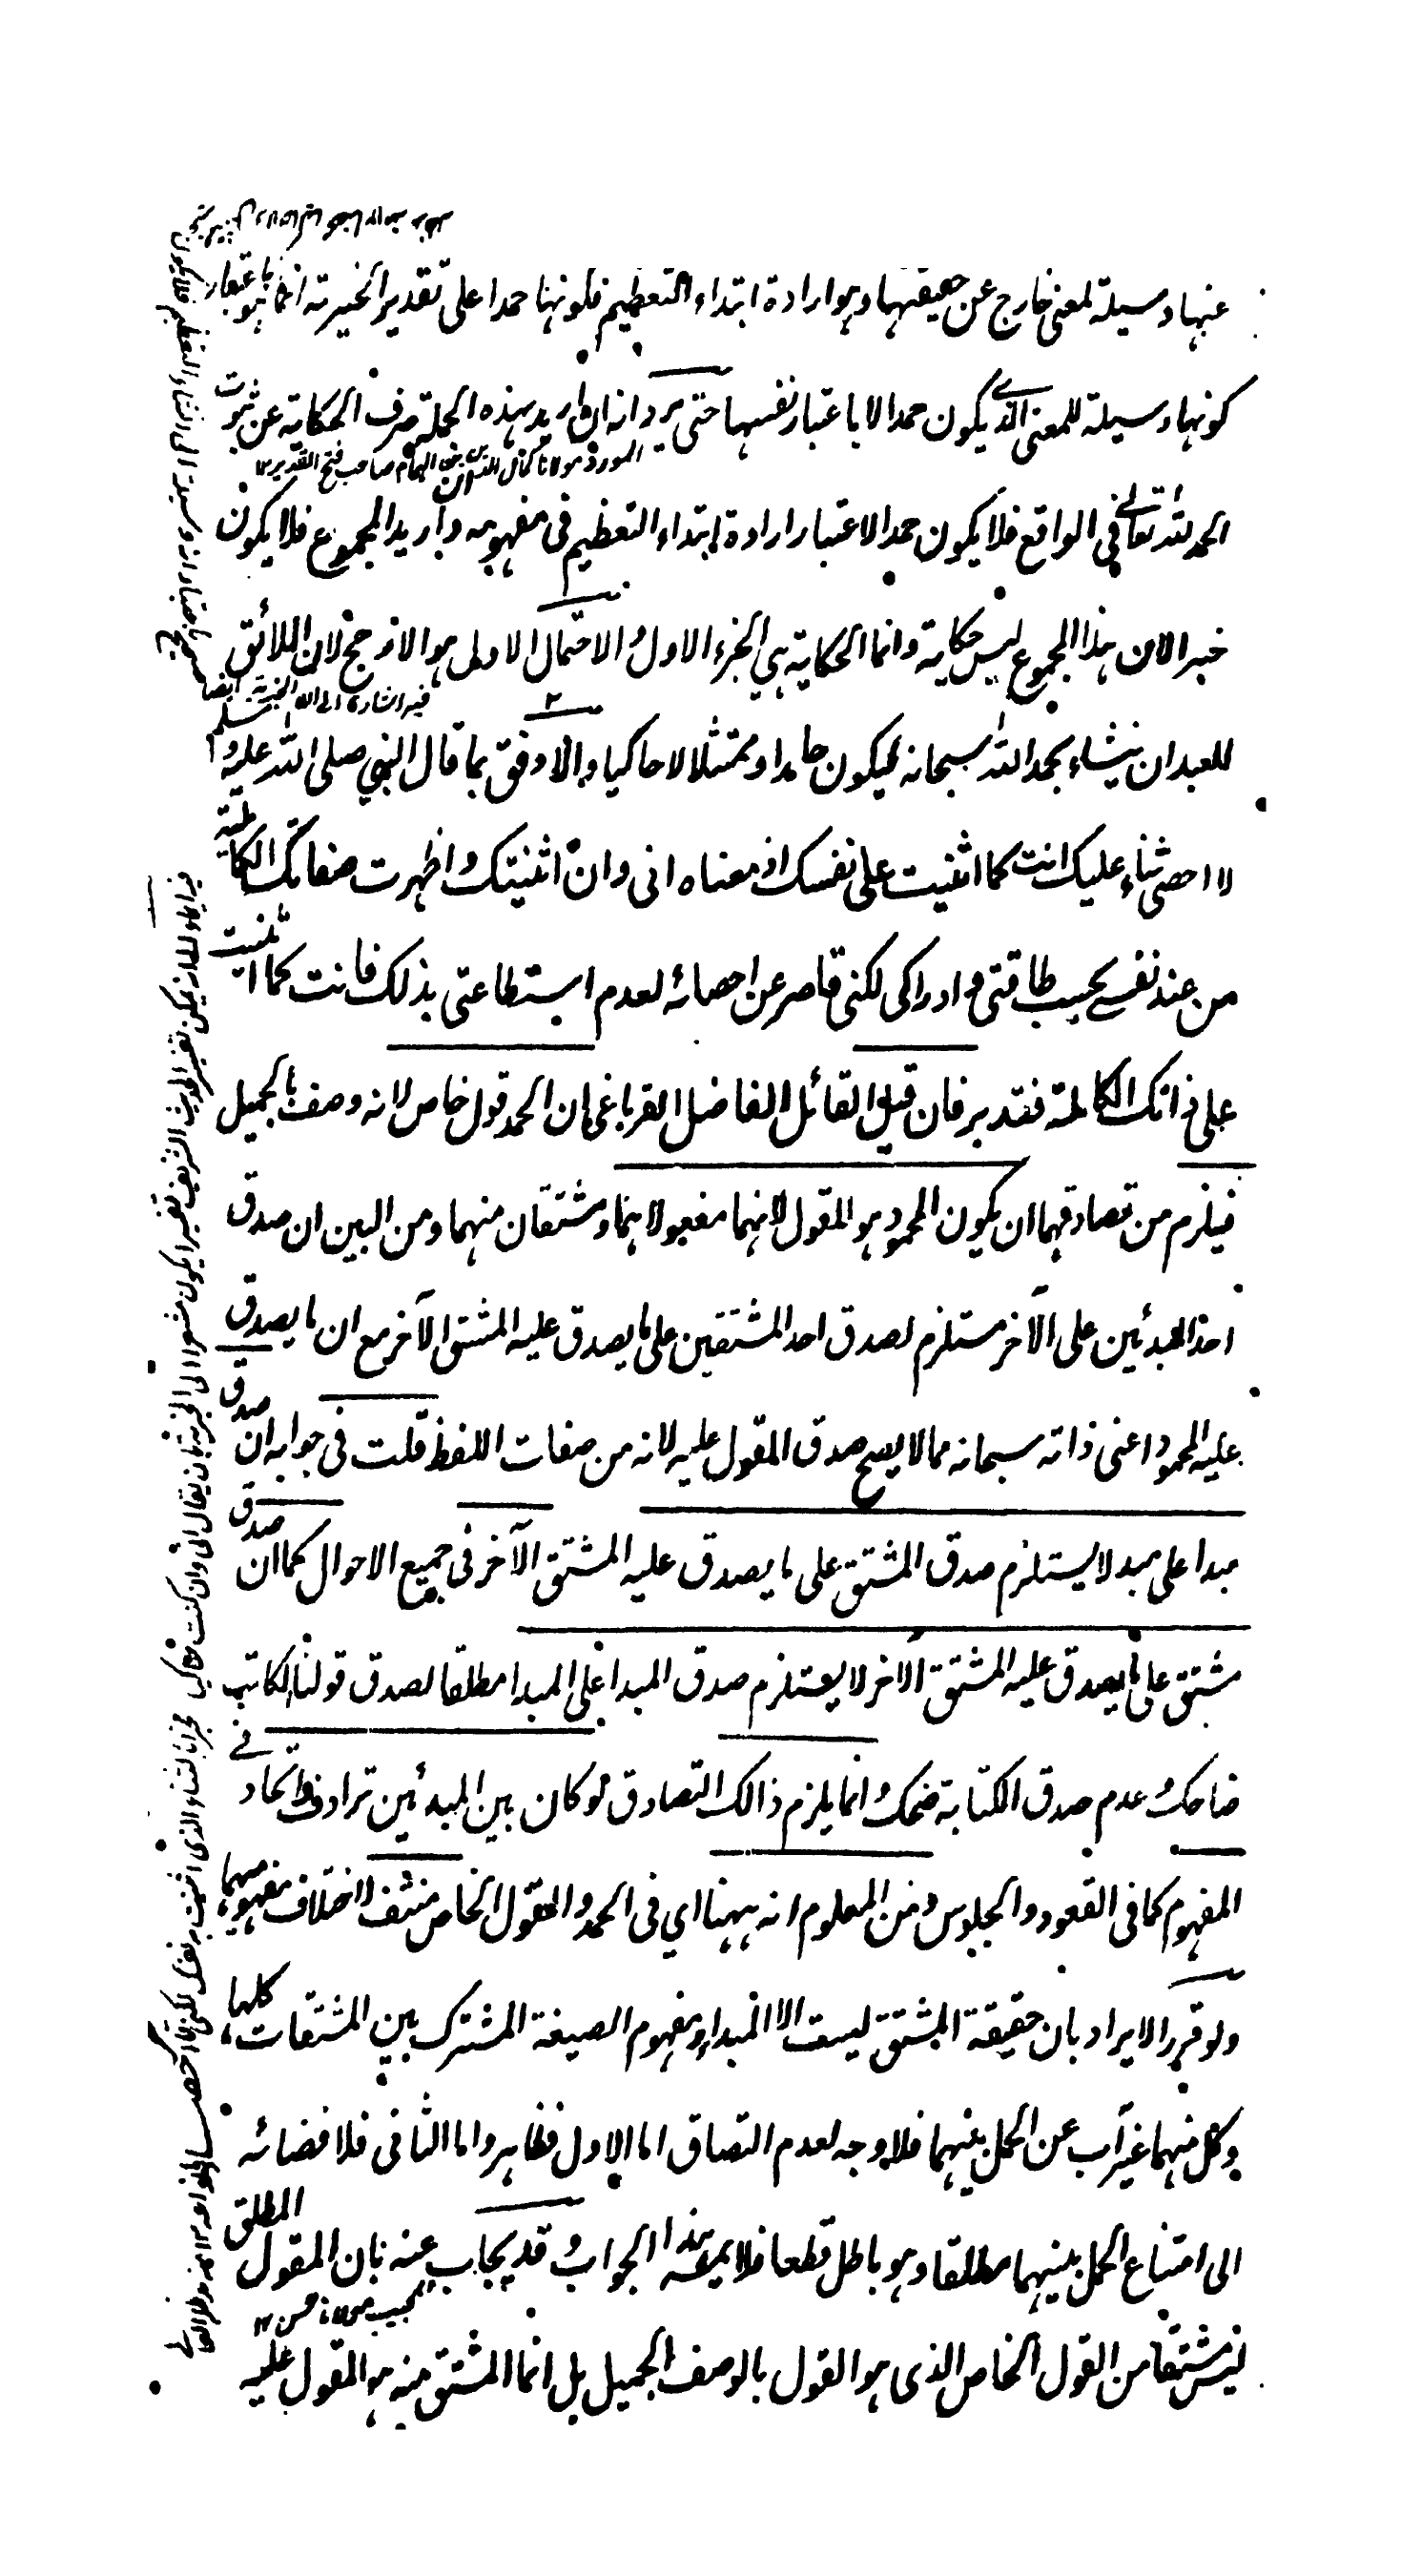 عنها وسيلة لمعنى خارج عن حقيقتها وهو ارادة ابتداء التعظيم فكونها حمدا على تقدير الخبرية انما هو باعتبار
كونها وسيلة للمعنى الذي يكون حمدا لا باعتبار نفسها حتى يرد انه ان اريد بهذه الجملة صرف الحكاية عن ثبوت
المورد مولانا كمال الدين بن الهمام صاحب فتح القدير ١٢
الحمد لله تعالى في الواقع فلا يكون حمدا لاعتبار ارادة ابتداء التعظيم في مفهومه وان اريد المجموع فلا يكون
خبرا لان هذا المجموع ليس حكاية وانما الحكاية هي الجزء الاول والاحتمال الاولى هو الارجح لان اللائق
فيه اشارة الى الخبرية ايضا
للعبد ان ينشاء بحمد الله سبحانه ليكون حامدا وممتثلا لا حاكيا والاوفق بما قال النبي صلى الله عليه وسلم
لا احصي ثناء عليك انت كما اثنيت على نفسك اذ معناه اني وان اثنيتك واظهرت صفاتك الكاملية
من عند نفسي بحسب طاقتي وادراكي لكني قاصر عن احصائه لعدم استطاعتي بذلك فانت كما اثنيت
على ذاتك الكاملة فتدبر فان قيل القائل الفاضل القرباغي ان الحمد قول خاص لانه وصف بالجميل
فيلزم من تصادقهما ان يكون المحمود هو المقول لانهما مفعولاهما ومشتقان منهما ومن البين ان صدق
احد المبدئين على الآخر مستلزم لصدق احد المشتقين على ما يصدق عليه المشتق الآخر مع ان ما يصدق
عليه المحمود اعني ذاته سبحانه مما لا يصح صدق المقول عليه لانه من صفات اللفظ قلت في جوابه ان صدق
مبدا على مبدا لا يستلزم صدق المشتق على ما يصدق عليه المشتق الآخر في جميع الاحوال كما ان صدق
مشتق على ما يصدق عليه المشتق الآخر لا يستلزم صدق المبدا على المبدا مطلقا لصدق قولنا الكاتب
ضاحك وعدم صدق الكتابة ضحك وانما يلزم ذالك التصادق لو كان بين المبدئين ترادف واتحاد في
المفهوم كما في القعود والجلوس ومن المعلوم انه ههنا اي في الحمد والقول الخاص منتف لاختلاف مفهوميهما
ولو قرر الايراد بان حقيقة المشتق ليست الا المبداء ومفهوم الصيغة المشترك بين المشتقات كلها
وكل منهما غير آب عن الحمل بينهما فلا وجه لعدم التصاق اما الاول فظاهر واما الثاني فلافضائه
الى امتناع الحمل بينهما مطلقا وهو باطل قطعا فلا يمشي هذا الجواب وقد يجاب عنه بان المقول المطلق
المجيب مولانا حسن ١٢
ليس مشتقا من القول الخاص الذي هو القول بالوصف الجميل بل انما المشتق منه هو المقول عليه